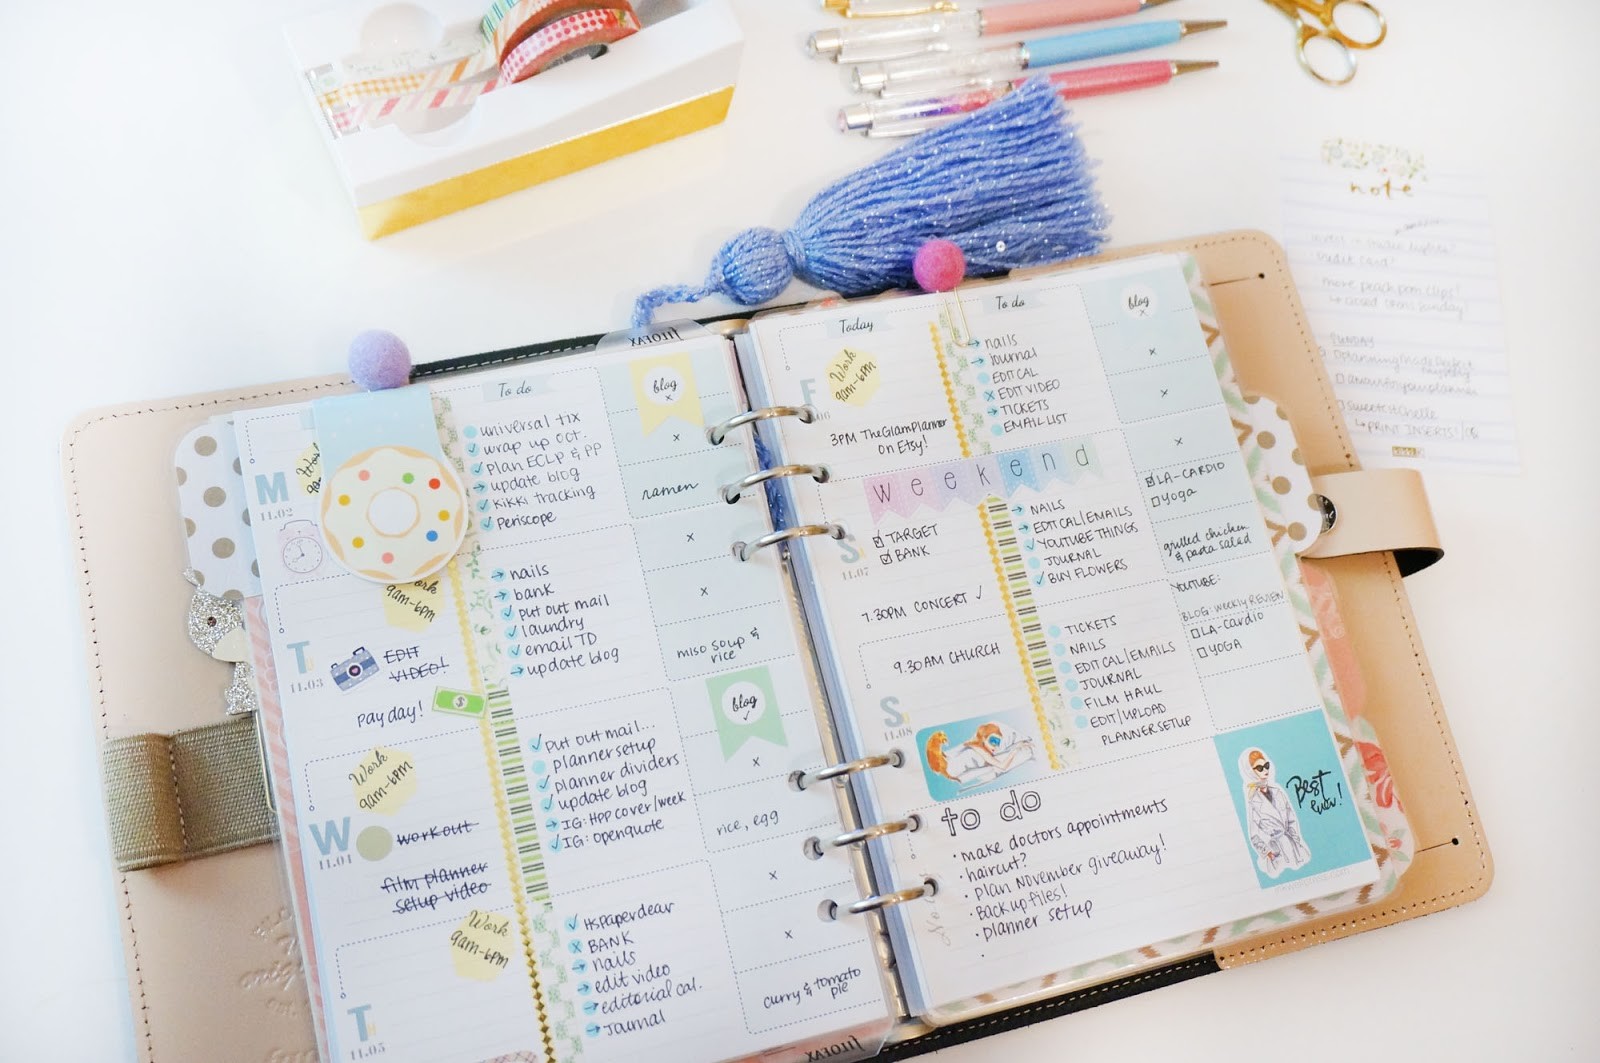 FILOFAX
To do
blog
x
M
11.02
universal fix
wrap up oct.
plan ECLP & PP
update blog
kikki tracking
Periscope
x
ramen
T
11.03
Work
9am-6pm
EDIT
VIDEO!
pay day!
nails
bank
put out mail
laundry
email TD
update blog
x
x
miso soup &
rice
W
11.04
Work
9am-6pm
workout
film planner
setup video
put out mail...
planner setup
planner dividers
update blog
IG: HPP cover/week
IG: openquote
blog
x
rice, egg
T
11.05
Work
9am-6pm
HSpaperdear
BANK
nails
edit video
editorial cal.
Journal
x
x
curry & tomato
pie
FILOFAX
Today
To do
blog
x
F
06
Work
9am-6pm
3PM TheGlamPlanner
on Etsy!
nails
Journal
EDIT CAL
EDIT VIDEO
TICKETS
EMAIL LIST
x
x
x
weekend
S
11.07
TARGET
BANK
7.30PM CONCERT
NAILS
EDIT CAL/EMAILS
YOUTUBE THINGS
JOURNAL
BUY FLOWERS
LA-CARDIO
yoga
grilled chicken
& pasta salad
S
11.08
9.30AM CHURCH
TICKETS
NAILS
EDIT CAL/EMAILS
JOURNAL
FILM HAUL
EDIT/UPLOAD
PLANNER SETUP
YOUTUBE:
BLOG: WEEKLY REVIEW
LA-Cardio
YOGA
to do
• make doctors appointments
• haircut?
• plan November giveaway!
• Backup files!
• planner setup
•
Best
note
SUNDAY